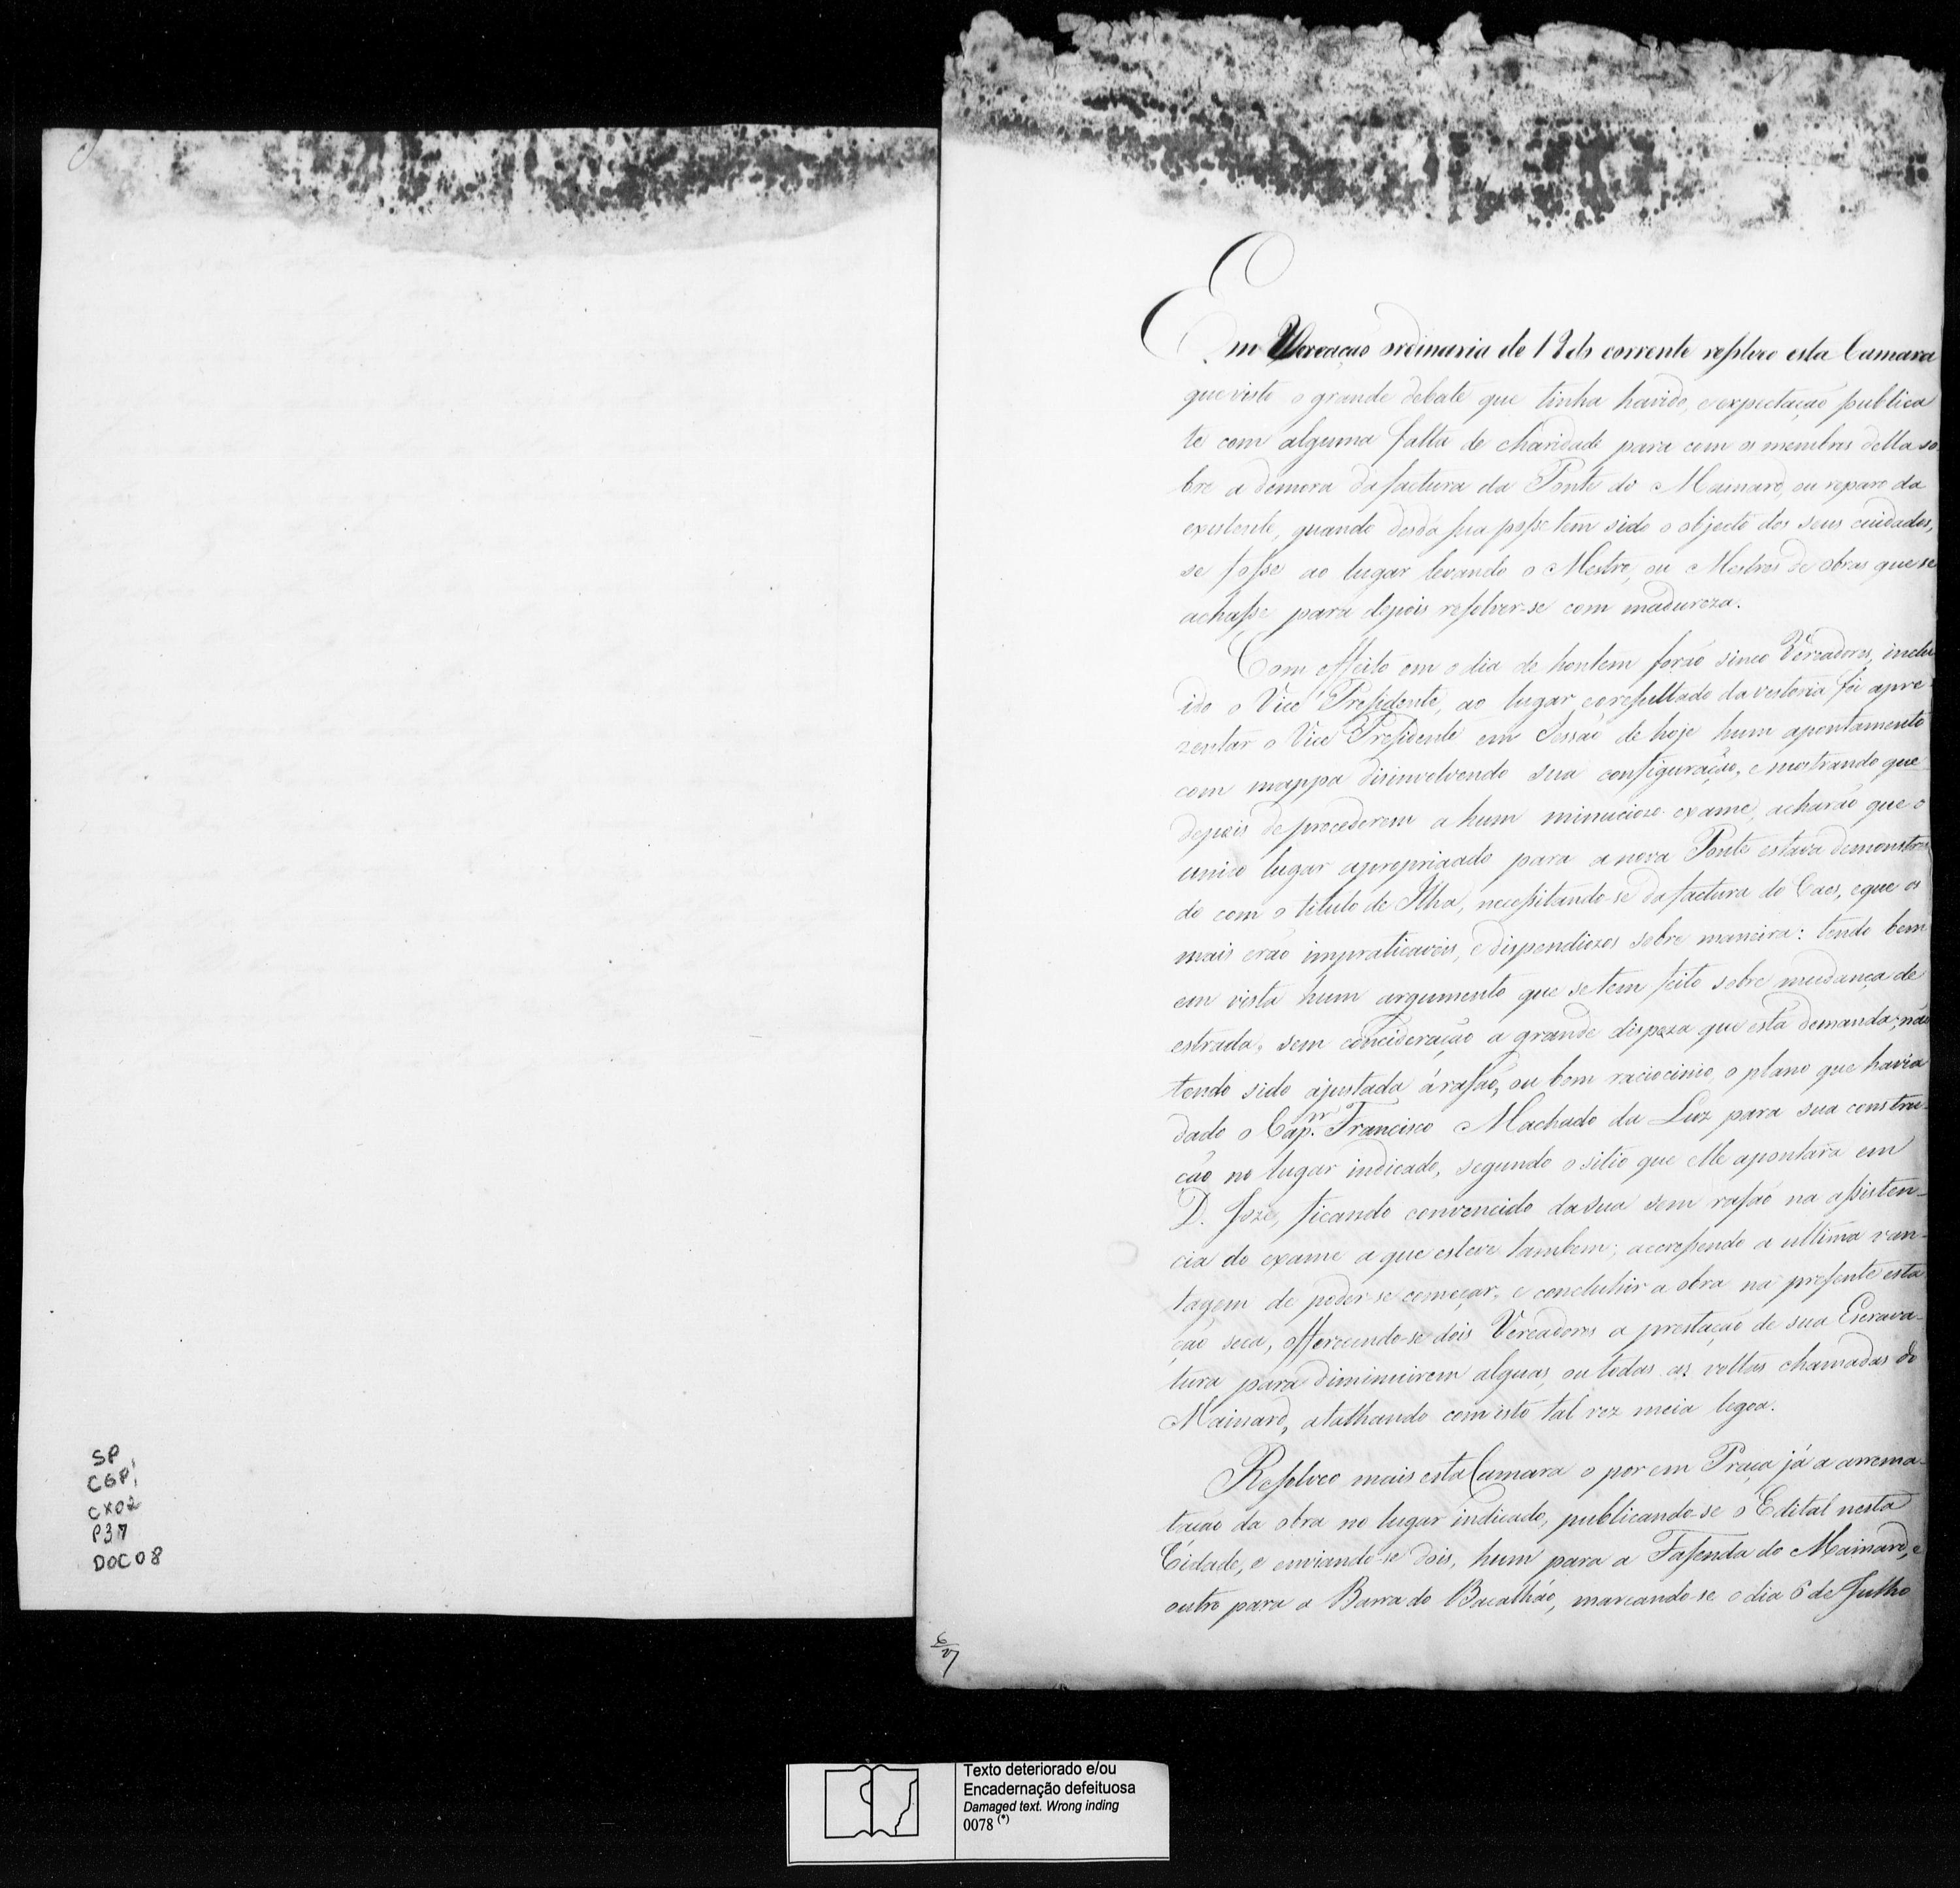 SP
CGP,
CX02
P37
DOC08
Em Vereação ordinaria de 19 do corrente resolveo esta Camara
que visto o grande debate que tinha havido, e expectação publica
te com alguma falta de charidade para com os membros della so-
bre a demora da factura da Ponte do Mainard, ou reparo da
existente, quando desda sua posse tem sido o objecto dos seus cuidados,
se fosse ao lugar levando o Mestre, ou Mestres de obras que se
achasse para depois resolver-se com madureza.
Com effeito em o dia de hontem forão sinco Vereadores, inclu
ido o Vice Presidente, ao lugar, e o resultado da vestoria foi apre-
zentar o Vice Presidente em Sessão de hoje hum apontamento
com mappa disinvolvendo sua configuração, e mostrando que
depois de procederem a hum minucioso exame, acharão que o
unico lugar apropriaado para a nova Ponte estava demonstra
do com o titulo de Ilha, necessitando-se da factura do Caes, e que os
mais erão impraticaveis, e dispendiozos sobre maneira: tendo bem
em vista hum argumento que se tem feito sobre mudança de
estrada, sem concideração a grande dispeza que esta demanda; não
tendo sido ajustada á rasão, ou bom raciocinio, o plano que havia
dado o Cap.m Francisco Machado da Luz para sua constru-
ção no lugar indicado, segundo o sitio que Elle apontara em
D. Joze, ficando convencido da sua sem rasão na assisten-
cia do exame a que esteve tambem; accressendo a ultima van-
tagem de poder-se começar, e concluhir a obra na presente esta
ção seca, offerecendo-se dois Vereadores a prestação de sua Escrava-
tura para diminuirem alguas, ou todas as voltas chamadas do
Mainard, atalhando com isto tal vez meia legoa.
Resolveo mais esta Camara o por em Praça já a arrema-
tação da obra no lugar indicado, publicando-se o Edital nesta
Cidade, e enviando-se dois, hum para a Fasenda do Mainard, e
outro para a Barra do Bacalháo, marcando-se o dia 6 de Julho
6/27
Texto deteriorado e/ou
Encadernação defeituosa
Damaged text. Wrong inding
0078 (*)